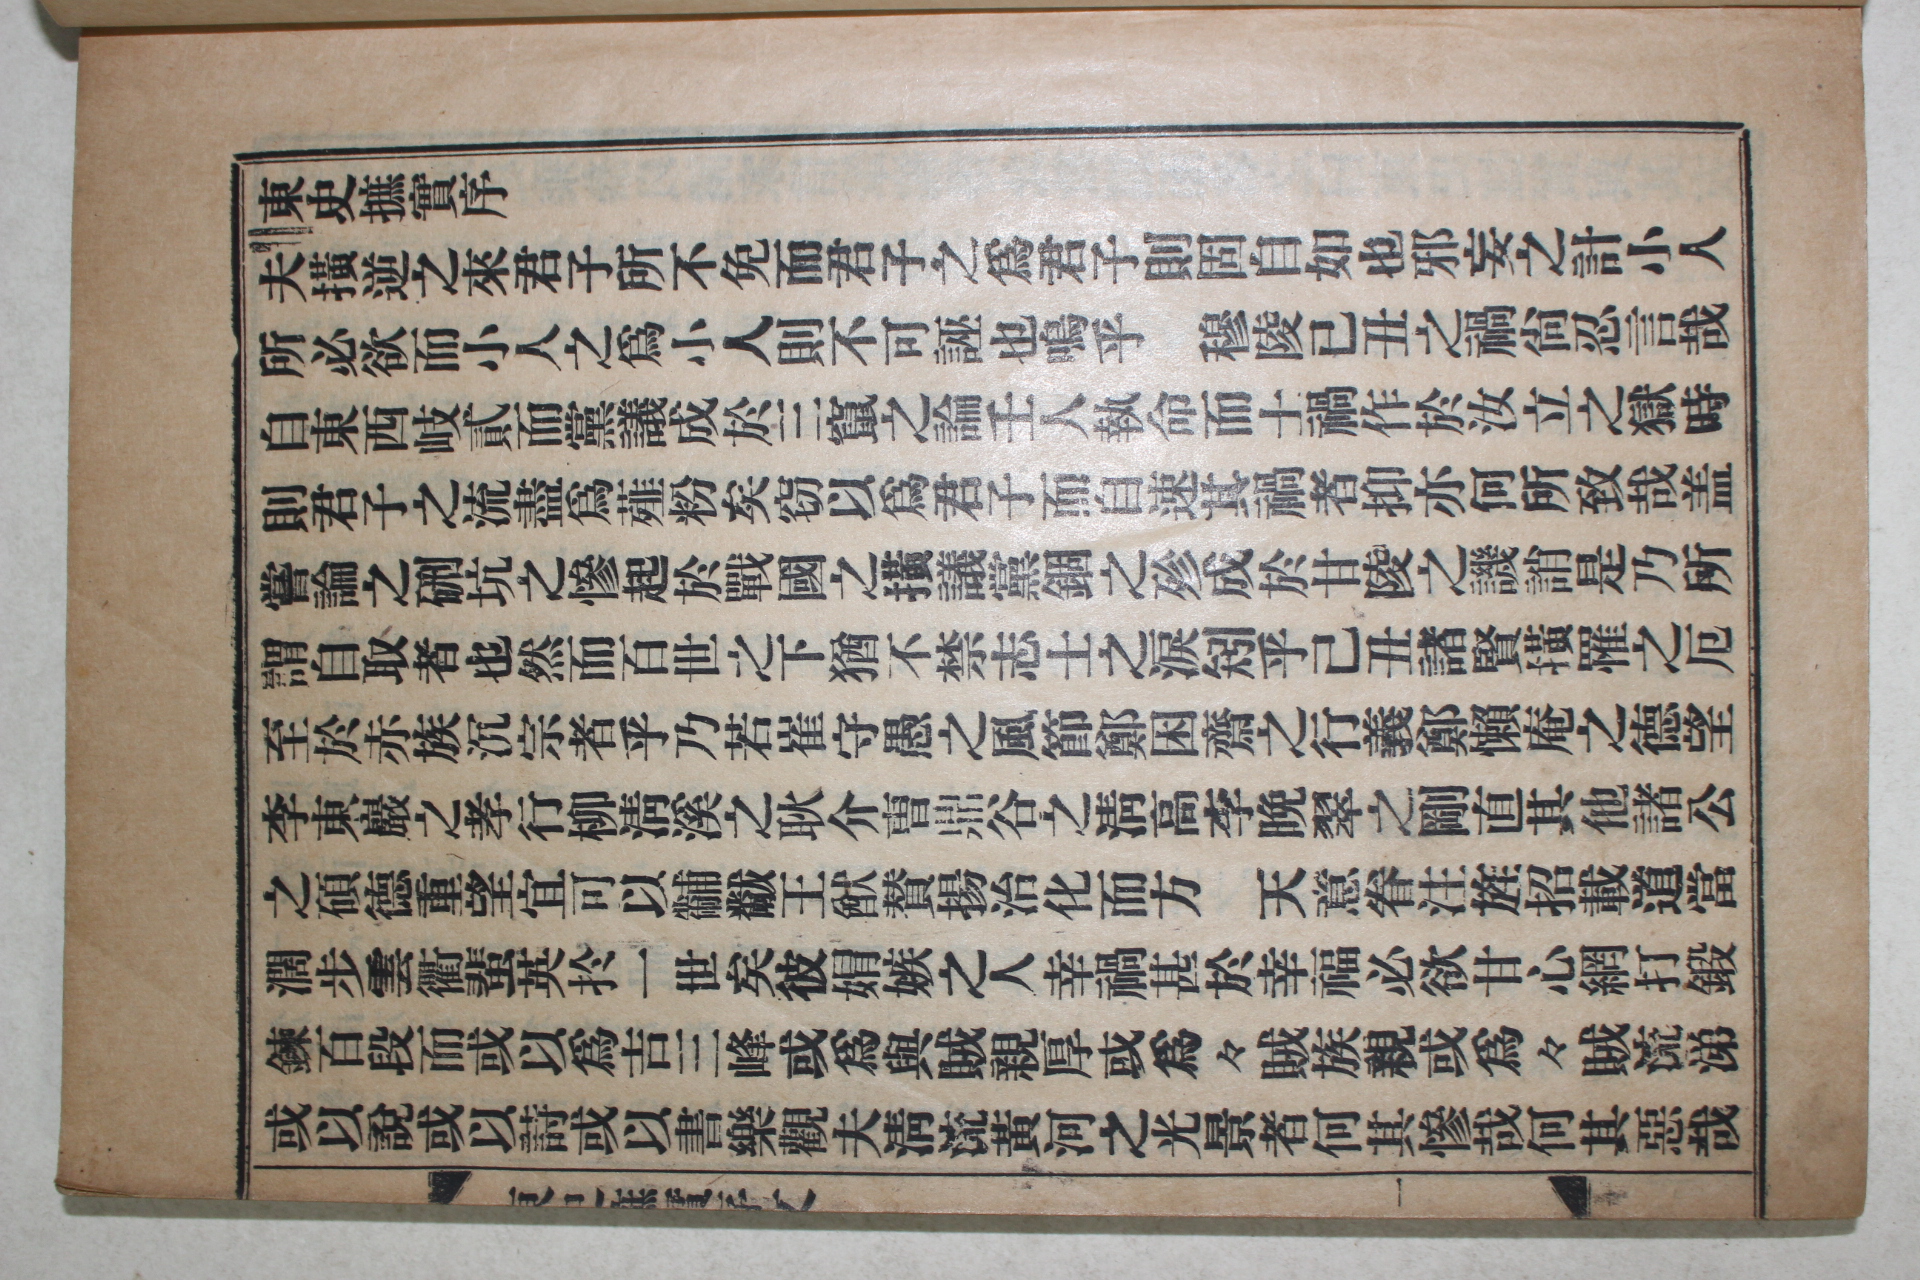 東史摭實序
夫橫逆之來君子所不免而君子之爲君子則固自如也邪妄之計小人
所必欲而小人之爲小人則不可誣也嗚乎　穆陵己丑之禍尙忍言哉
自東西岐貳而黨議成於三竄之論壬人執命而士禍作於汝立之獄時
則君子之流盡爲虀粉矣窃以爲君子而自速其禍者抑亦何所致哉盖
嘗論之硎坑之慘起於戰國之橫議黨錮之殄成於甘陵之譏誚是乃所
謂自取者也然而百世之下猶不禁志士之淚矧乎己丑諸賢橫罹之厄
至於赤族沉宗者乎乃若崔守愚之風節鄭困齋之行義鄭懶庵之德望
李東巖之孝行柳淸溪之耿介曺鼎谷之淸高李晩翠之剛直其他諸公
之碩德重望宜可以黼黻王猷贊揚治化而方　天意眷注旌招載道當
濶步雲衢蜚英於一世矣彼娼嫉之人幸禍甚於幸福必欲甘心網打鍛
鍊百段而或以爲吉三峰或爲與賊親厚或爲々賊族親或爲々賊流涕
或以說或以詩或以書樂觀夫淸流黃河之光景者何其慘哉何其惡哉